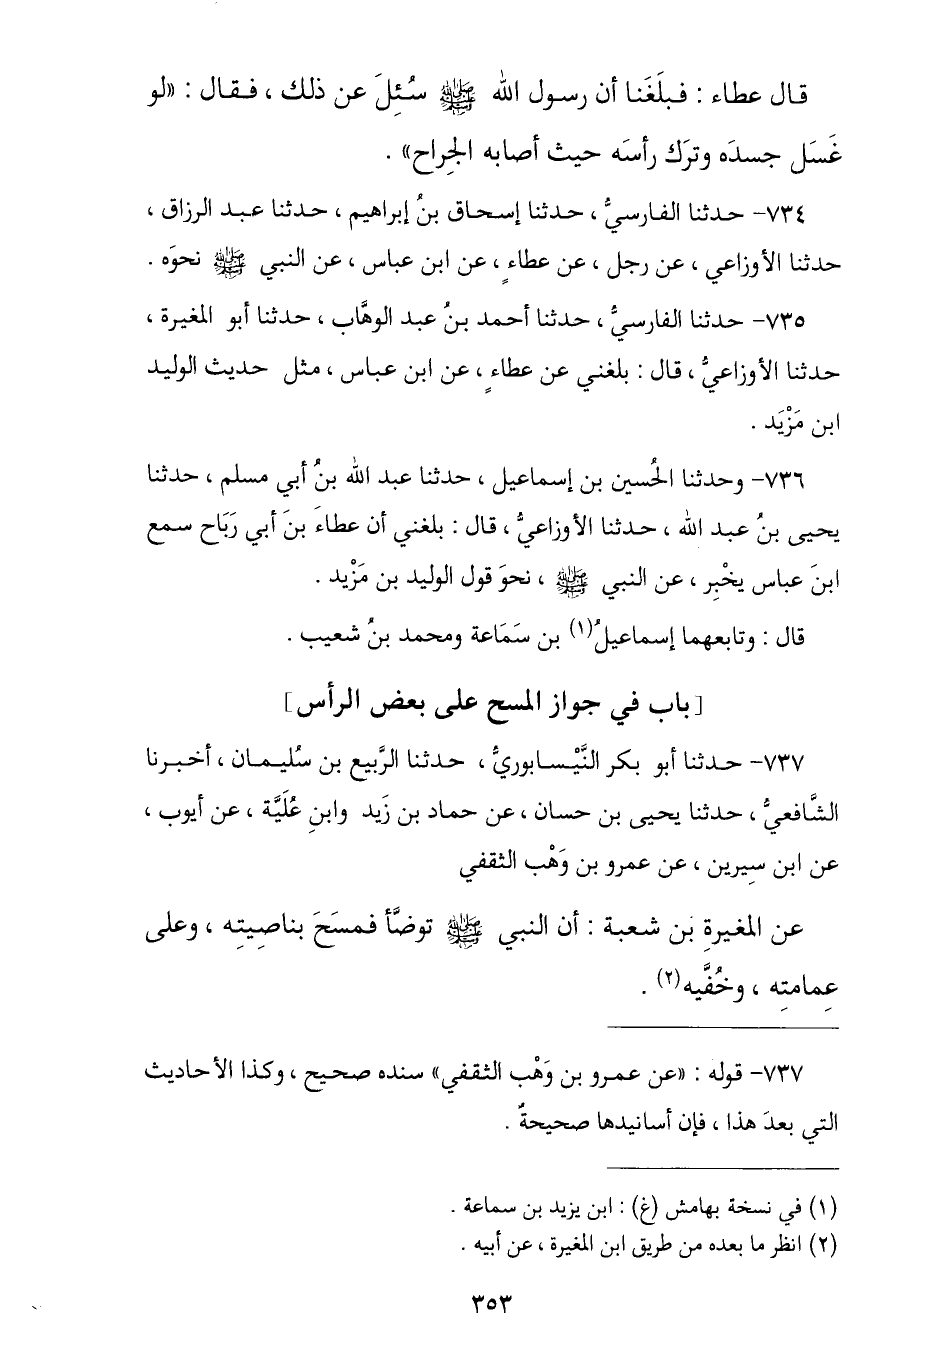 قال عطاء : فبلَغَنا أن رسول الله ﷺ سُئِلَ عن ذلك ، فقال : «لو
غَسَل جسدَه وترَك رأسَه حيث أصابه الجِراح» .
٧٣٤- حدثنا الفارسيُّ ، حدثنا إسحاق بنُ إبراهيم ، حدثنا عبد الرزاق ،
حدثنا الأوزاعي ، عن رجل ، عن عطاءٍ ، عن ابن عباس ، عن النبي ﷺ نحوَه .
٧٣٥- حدثنا الفارسيُّ ، حدثنا أحمد بنُ عبد الوهَّاب ، حدثنا أبو المغيرة ،
حدثنا الأوزاعيُّ ، قال : بلغني عن عطاءٍ ، عن ابن عباس ، مثل حديث الوليد
ابن مَزْيَد .
٧٣٦- وحدثنا الحُسين بن إسماعيل ، حدثنا عبد الله بنُ أبي مسلم ، حدثنا
يحيى بنُ عبد الله ، حدثنا الأوزاعيُّ ، قال : بلغني أن عطاءَ بنَ أبي رَبَاح سمع
ابنَ عباس يخْبِر ، عن النبي ﷺ ، نحوَ قول الوليد بن مَزْيد .
قال : وتابعهما إسماعيلُ(١) بن سَمَاعة ومحمد بنُ شعيب .
[باب في جواز المسح على بعض الرأس]
٧٣٧- حدثنا أبو بكر النَّيْسابوريُّ ، حدثنا الرَّبيع بن سُليمان ، أخبرنا
الشَّافعيُّ ، حدثنا يحيى بن حسان ، عن حماد بن زَيد وابنِ عُلَيَّة ، عن أيوب ،
عن ابن سِيرين ، عن عمرو بن وَهْب الثقفي
عن المغيرةِ بن شعبة : أن النبي ﷺ توضَّأ فمسَحَ بناصِيتِه ، وعلى
عِمامتِه ، وخُفَّيه(٢) .
٧٣٧- قوله : «عن عمرو بن وَهْب الثقفي» سنده صحيح ، وكذا الأحاديث
التي بعدَ هذا ، فإن أسانيدها صحيحةٌ .
(١) في نسخة بهامش (غ) : ابن يزيد بن سماعة .
(٢) انظر ما بعده من طريق ابن المغيرة ، عن أبيه .
٣٥٣